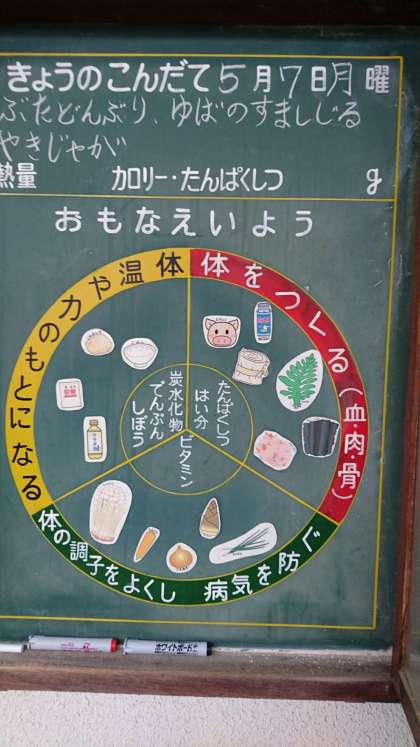 きょうのこんだて 5月7日月曜
ぶたどんぶり、ゆばのすましじる
やきじゃが
熱量 カロリー・たんぱくしつ g
おもなえいよう
体をつくる(血・肉・骨)
体温や力のもとになる
体の調子をよくし 病気を防ぐ
たんぱくしつ
はい分
炭水化物
でんぷん
しぼう
ビタミン
ホワイトボード